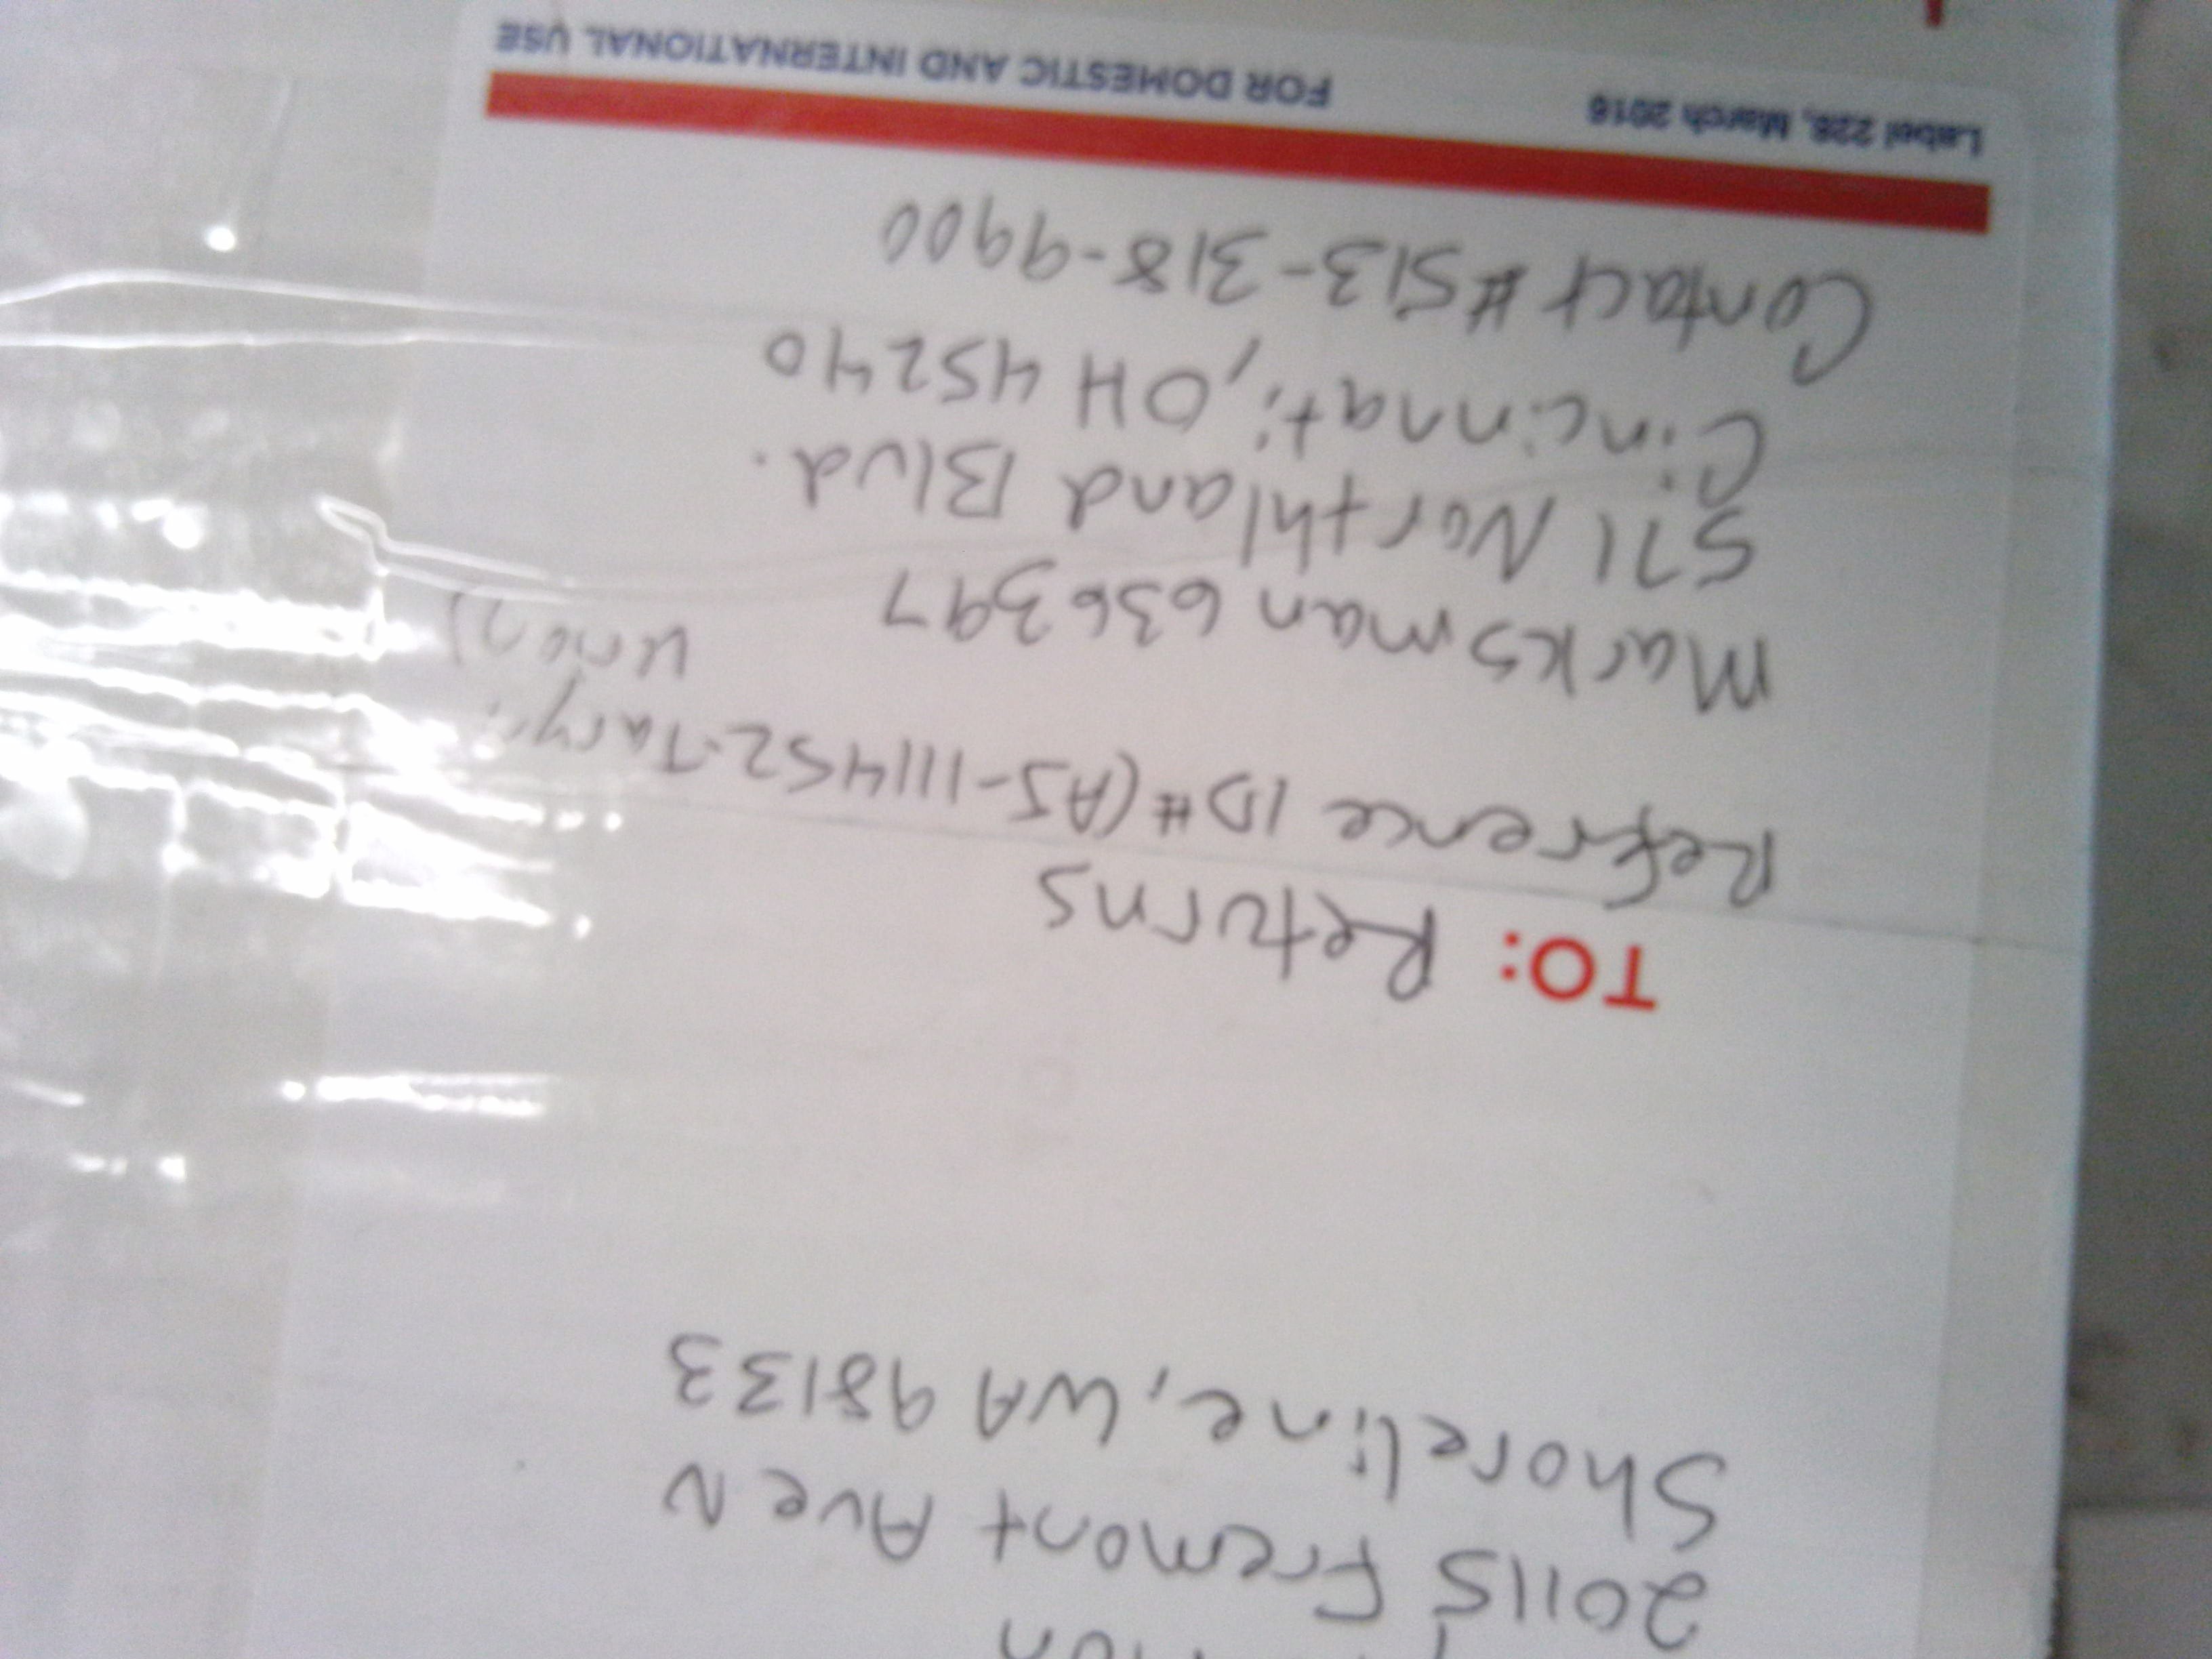 20115 Fremont Ave N
Shoreline, WA 98133
TO: Returns
Reference ID# (AJ-111452-Taryn
Marksman 636397
571 Northland Blvd.
Cincinnati, OH 45240
Contact #513-318-9900
Label 228, March 2016 FOR DOMESTIC AND INTERNATIONAL USE